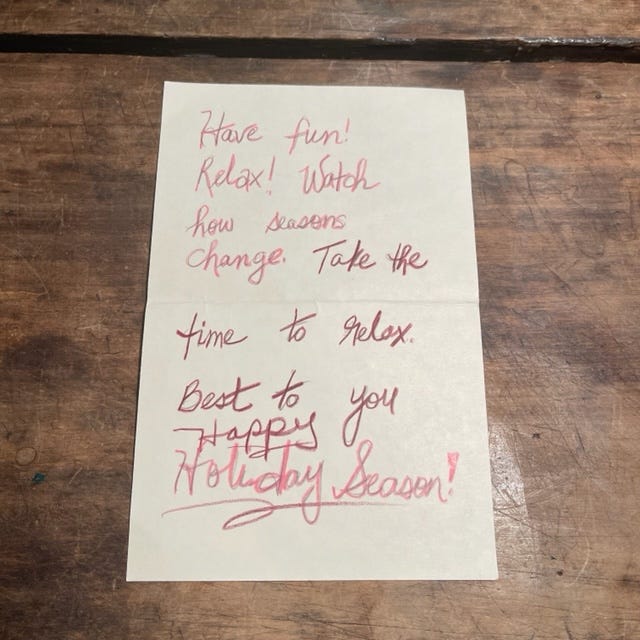 Have fun!
Relax! Watch
how seasons
change. Take the
time to relax.
Best to you
Happy
Holiday Season!